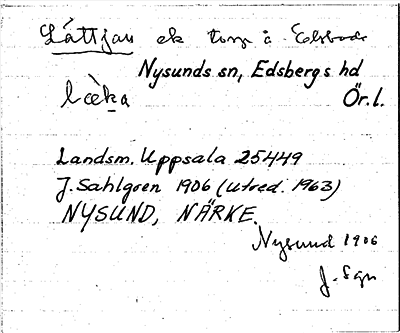 Lättjan ek torp å Edsbode
Nysunds sn, Edsbergs hd
Ör.l.
Landsm. Uppsala 25449
J. Sahlgren 1906 (utred. 1963)
NYSUND, NÄRKE.
Nysund 1906
J. Sgn